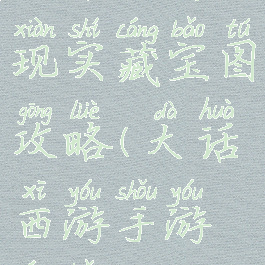 xiàn shí cáng bǎo tú
现实藏宝图
gōng lüè dà huà
攻略(大话
xī yóu shǒu yóu
西游手游